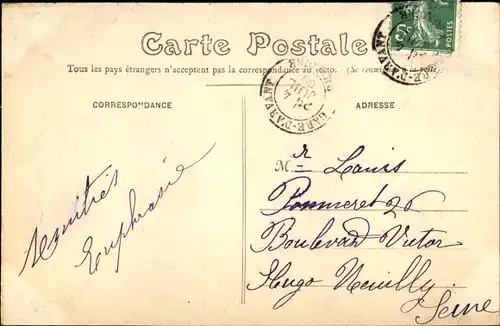 Carte Postale
Tous les pays étrangers n'acceptent pas la correspondance au recto. (Se renseigner à la poste)
CORRESPONDANCE
ADRESSE
GARE-D'ARVANT
GARE-D'ARVANT
Amitiés
Euphrasie
Mr Louis
Pommeret 26
Boulevard Victor
Hugo Neuilly
Seine